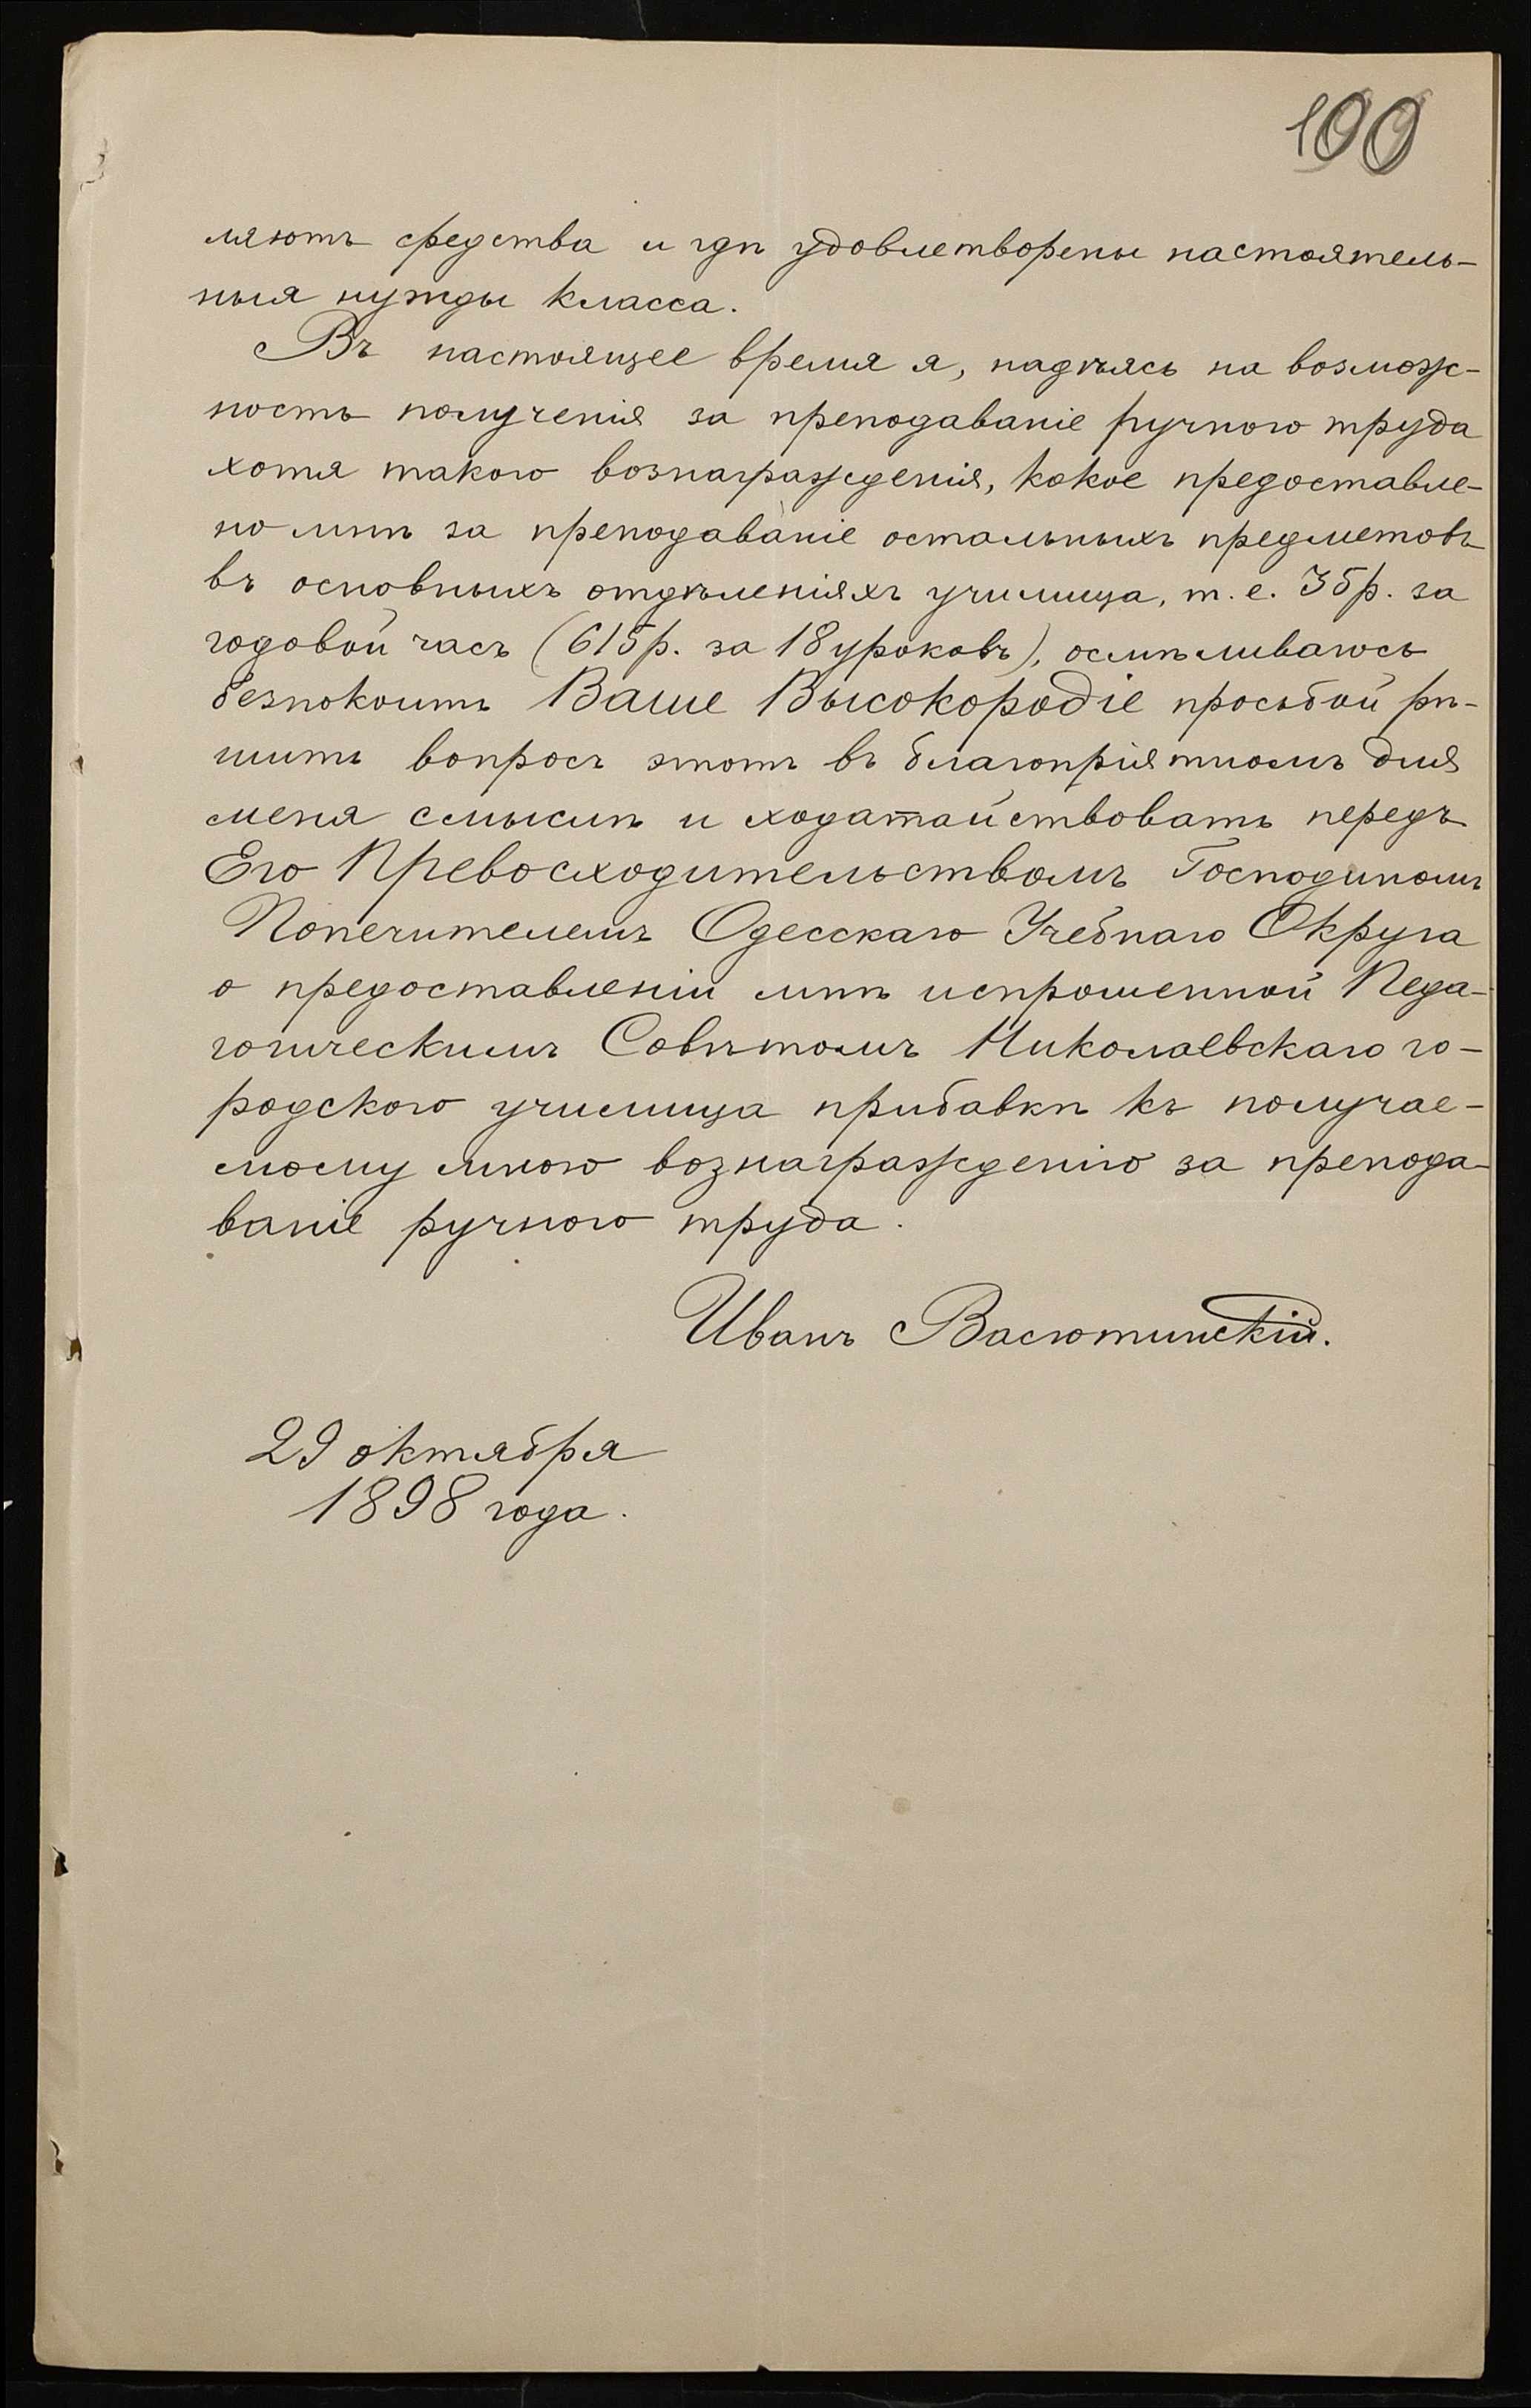 100
ляютъ средства и гдѣ удовлетворены настоятель-
ныя нужды класса.
Въ настоящее время я, надѣясь на возмож-
ность полученія за преподаваніе ручного труда
хотя такого вознагражденія, какое предоставле-
но мнѣ за преподаваніе остальныхъ предметовъ
въ основныхъ отдѣленіяхъ училища, т. е. 35 р. за
годовой часъ (615 р. за 18 уроковъ), осмѣливаюсь
безпокоить Ваше Высокородіе просьбой рѣ-
шить вопросъ этотъ въ благопріятномъ для
меня смыслѣ и ходатайствовать передъ
Его Превосходительствомъ Господиномъ
Попечителемъ Одесскаго Учебнаго Округа
о предоставленіи мнѣ испрошенной Педа-
гогическимъ Совѣтомъ Николаевскаго го-
родского училища прибавки къ получае-
мому мною вознагражденію за препода-
ваніе ручного труда.
Иванъ Васютинскій.
29 октября
1898 года.